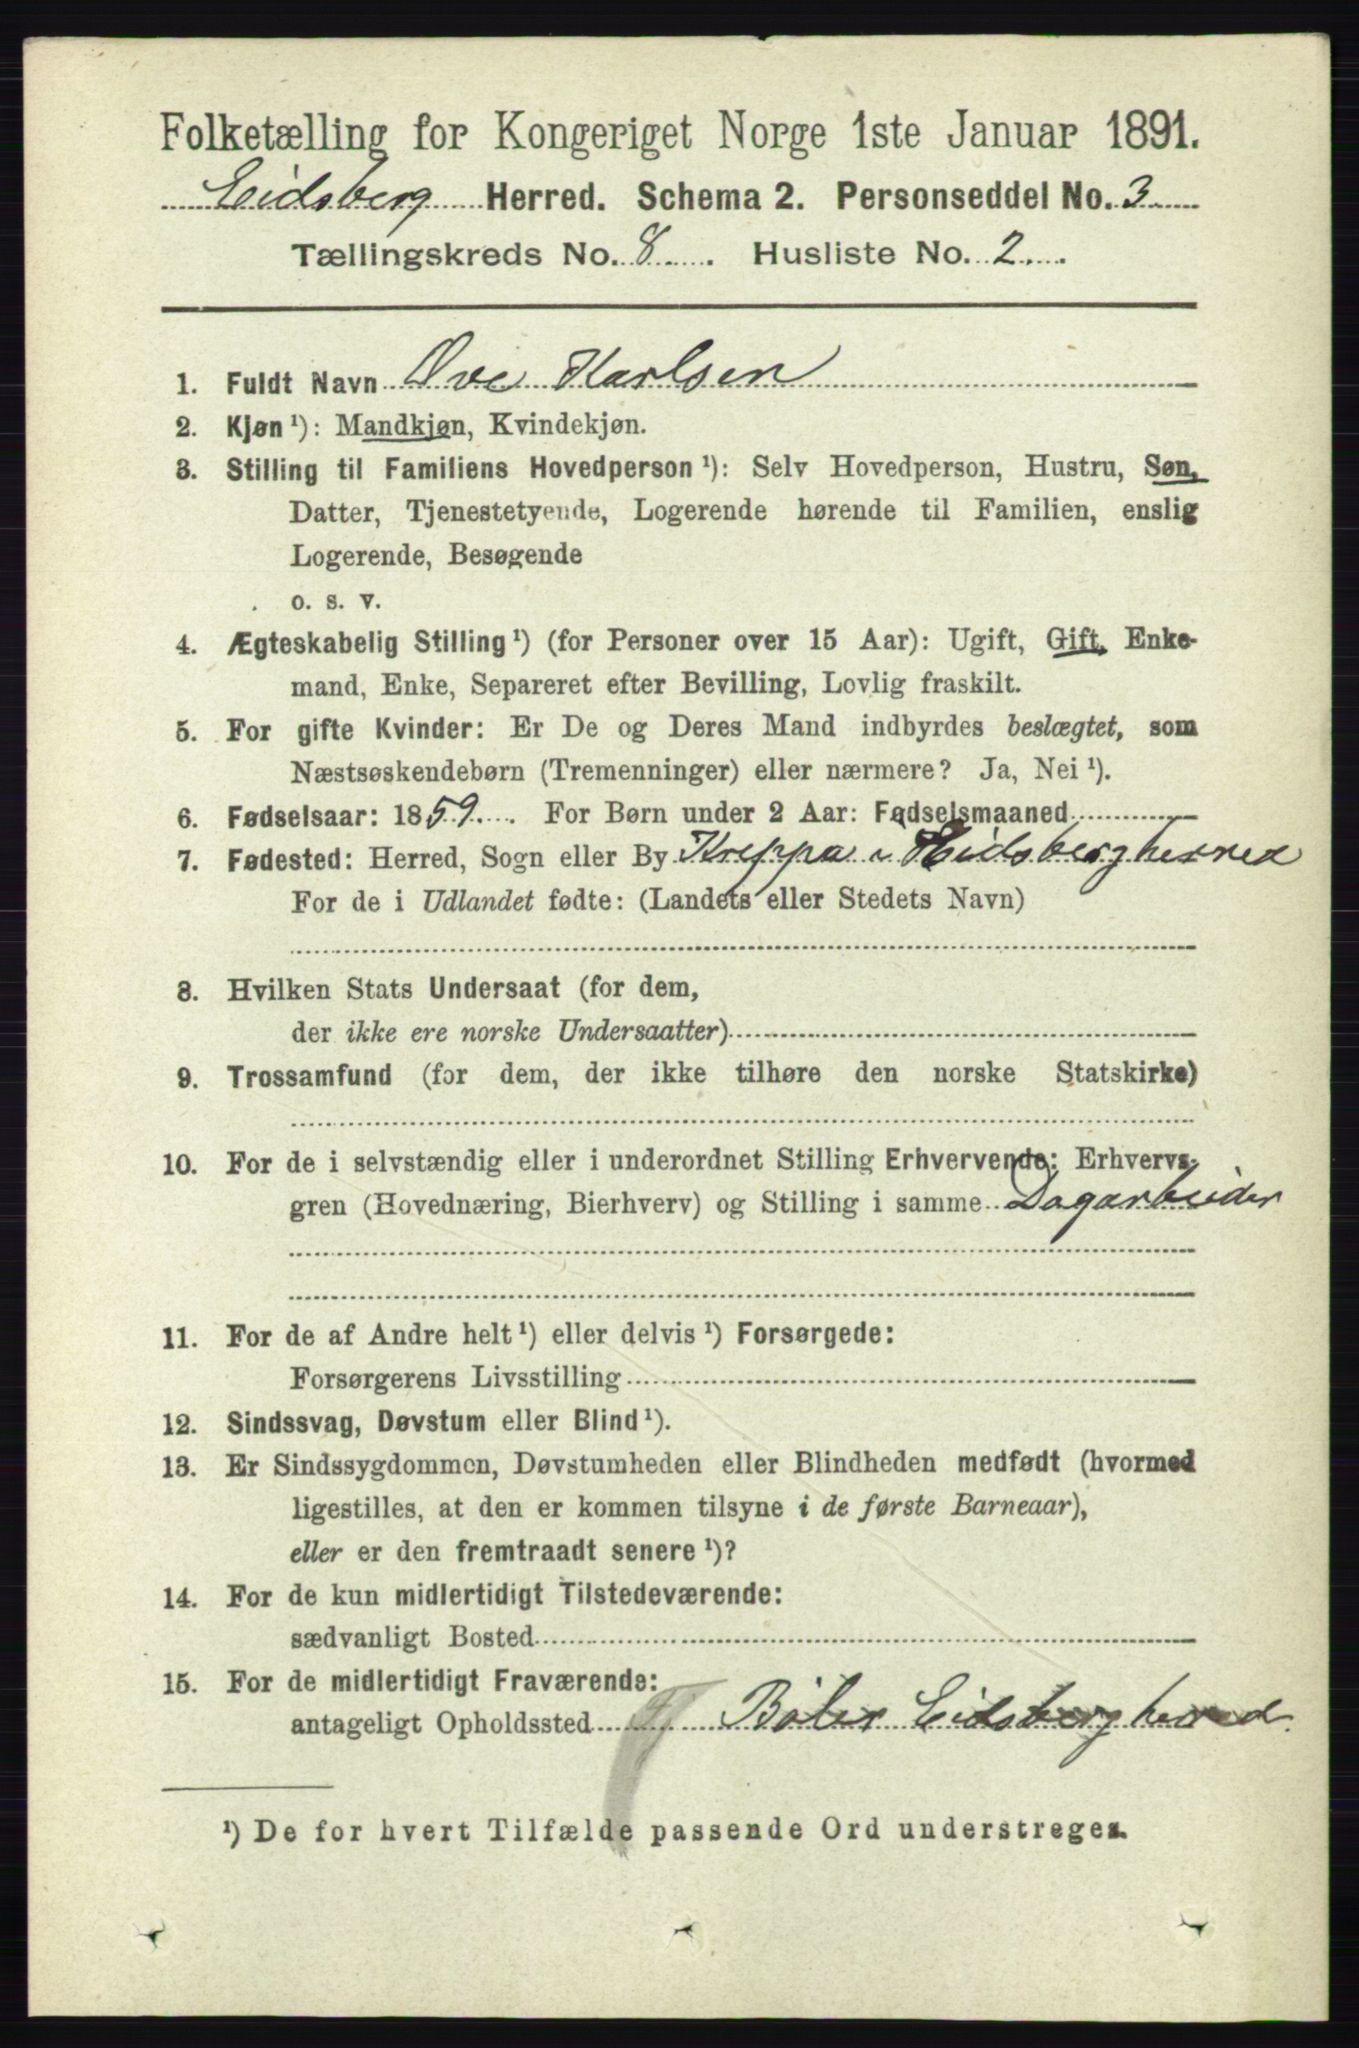 Folketælling for Kongeriget Norge 1ste Januar 1891.
Eidsberg Herred. Schema 2. Personseddel No. 3
Tællingskreds No. 8. Husliste No. 2.
1. Fuldt Navn Ove Karlsen
2. Kjøn ¹): Mandkjøn, Kvindekjøn.
3. Stilling til Familiens Hovedperson ¹): Selv Hovedperson, Hustru, Søn,
Datter, Tjenestetyende, Logerende hørende til Familien, enslig
Logerende, Besøgende
o. s. v.
4. Ægteskabelig Stilling ¹) (for Personer over 15 Aar): Ugift, Gift, Enke-
mand, Enke, Separeret efter Bevilling, Lovlig fraskilt.
5. For gifte Kvinder: Er De og Deres Mand indbyrdes beslægtet, som
Næstsøskendebørn (Tremenninger) eller nærmere? Ja, Nei ¹).
6. Fødselsaar: 1859. For Børn under 2 Aar: Fødselsmaaned
7. Fødested: Herred, Sogn eller By Kreppa i Eidsberg herred
For de i Udlandet fødte: (Landets eller Stedets Navn)
8. Hvilken Stats Undersaat (for dem,
der ikke ere norske Undersaatter)
9. Trossamfund (for dem, der ikke tilhøre den norske Statskirke)
10. For de i selvstændig eller i underordnet Stilling Erhvervende: Erhvervs-
gren (Hovednæring, Bierhverv) og Stilling i samme Dagarbeider
11. For de af Andre helt ¹) eller delvis ¹) Forsørgede:
Forsørgerens Livsstilling
12. Sindssvag, Døvstum eller Blind ¹).
13. Er Sindssygdommen, Døvstumheden eller Blindheden medfødt (hvormed
ligestilles, at den er kommen tilsyne i de første Barneaar),
eller er den fremtraadt senere ¹)?
14. For de kun midlertidigt Tilstedeværende:
sædvanligt Bosted
15. For de midlertidigt Fraværende:
antageligt Opholdssted Bøler Eidsberg herred.
¹) De for hvert Tilfælde passende Ord understreges.